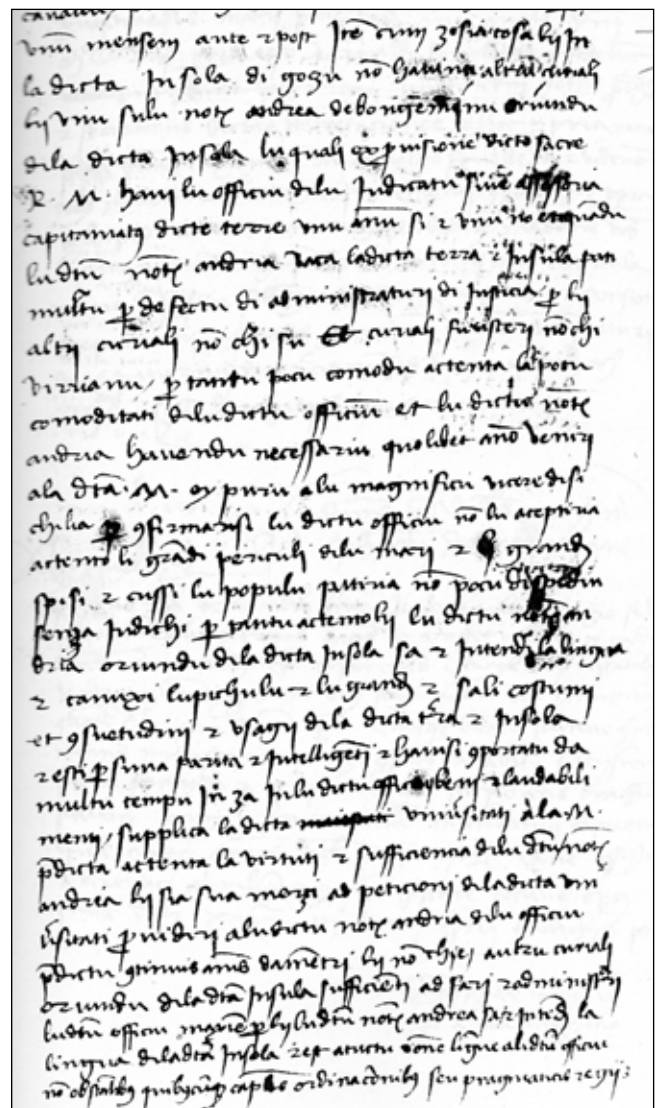 unu mensem ante et post Ite cum zosia cosa ki In
la dicta Insola di gozu no havimu altru curiali
ki unu sulu not andrea de bongeminu oriundu
dila dicta Insola lu quali ex provisione dicte sacre
R. M. havi lu officiu dilu Judicatu sive assessoria
capitaniatus dicte terre unu annu si et unu no et quandu
lu dictu not andria vaca la dicta terra et Insula pati
multu per defectu di administraturi di Justicia per ki
altri curiali no chi su Et curiali furisteri no chi
virrianu per tantu pocu comodu actenta la poca
comoditati dilu dictu officiu et lu dictu not
andria havendu necessariu quolibet anno veniri
ala dicta M. oy puru alu magnificu vicere di si
chilia confirmarisi lu dictu officiu no lu aceptiria
actento li grandi periculi dilu mari et grandi
spisi et cussi lu populu patiria no pocu dispendiu
senza Judichi per tantu actento ki lu dictu not an
dria oriundu dila dicta Insola sa et Intendi la lingua
et canuxi lu pichulu et lu grandi et sali costumi
et consuetudini et usagii dila dicta terra et Insola
et esti persuna parita et Intelligenti et havisi comportatu da
multu tempu In za In lu dictu officiu beni et laudabili
menti supplica la dicta universitati a la M.
predicta actenta la virtuti et sufficiencia dilu dictu not
andria ki sia sua merzi ad peticioni dila dicta uni
versitati providiri alu dictu not andria dilu officiu
predictu continuis annis damentri ki no chi e autru curiali
oriundu dila dicta Insula sufficienti ad fari et administrari
lu dictu officiu maxime per ki lu dictu not andrea sa et Intendi la
lingua dila dicta Insola et est actu ligue a lu dictu officiu
no obstantibus quibuscumque capitulo ordinacionibus seu pragmaticis regiis